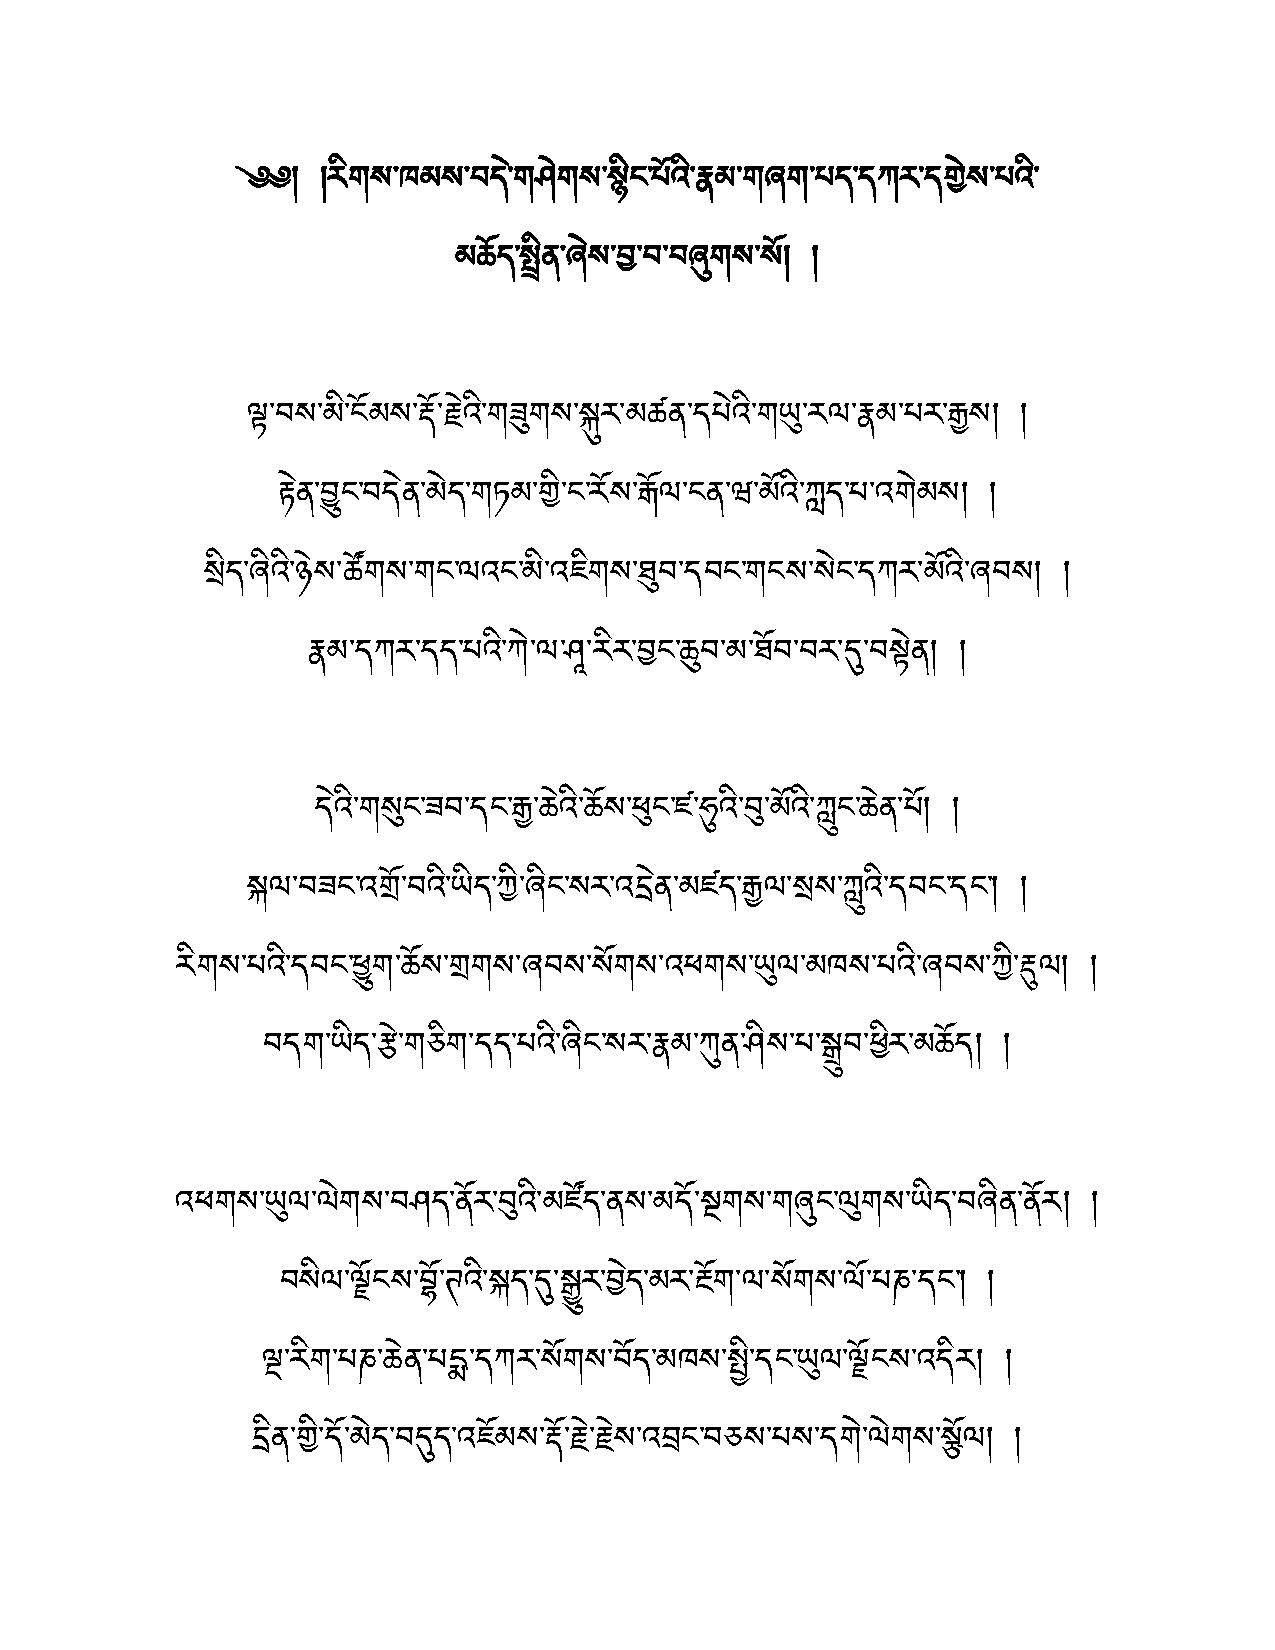 ༄༅། །རིགས་ཁམས་བདེ་གཤེགས་སྙིང་པོའི་རྣམ་གཞག་པད་དཀར་དགྱེས་པའི་
མཆོད་སྤྲིན་ཞེས་བྱ་བ་བཞུགས་སོ། །
ལྟ་བས་མི་ངོམས་རྡོ་རྗེའི་གཟུགས་སྐུར་མཚན་དཔེའི་གཡུ་རལ་རྣམ་པར་རྒྱས། །
རྟེན་བྱུང་བདེན་མེད་གཏམ་གྱི་ང་རོས་རྒོལ་ངན་ཝ་མོའི་ཀླད་པ་འགེམས། །
སྲིད་ཞིའི་ཉེས་ཚོགས་གང་ལའང་མི་འཇིགས་ཐུབ་དབང་གངས་སེང་དཀར་མོའི་ཞབས། །
རྣམ་དཀར་དད་པའི་ཀེ་ལ་ཤཱ་རིར་བྱང་ཆུབ་མ་ཐོབ་བར་དུ་བསྟེན། །
དེའི་གསུང་ཟབ་དང་རྒྱ་ཆེའི་ཆོས་ཕུང་ཛ་ཧུའི་བུ་མོའི་ཀླུང་ཆེན་པོ། །
སྐལ་བཟང་འགྲོ་བའི་ཡིད་ཀྱི་ཞིང་སར་འདྲེན་མཛད་རྒྱལ་སྲས་ཀླུའི་དབང་དང་། །
རིགས་པའི་དབང་ཕྱུག་ཆོས་གྲགས་ཞབས་སོགས་འཕགས་ཡུལ་མཁས་པའི་ཞབས་ཀྱི་རྡུལ། །
བདག་ཡིད་རྩེ་གཅིག་དད་པའི་ཞིང་སར་རྣམ་ཀུན་ཤིས་པ་སྒྲུབ་ཕྱིར་མཆོད། །
འཕགས་ཡུལ་ལེགས་བཤད་ནོར་བུའི་མཛོད་ནས་མདོ་སྔགས་གཞུང་ལུགས་ཡིད་བཞིན་ནོར། །
བསིལ་ལྗོངས་བྷོ་ཊའི་སྐད་དུ་སྒྱུར་བྱེད་མར་རྔོག་ལ་སོགས་ལོ་པཎ་དང་། །
ལྔ་རིག་པཎ་ཆེན་པདྨ་དཀར་སོགས་བོད་མཁས་སྤྱི་དང་ཡུལ་ལྗོངས་འདིར། །
དྲིན་གྱི་དོ་མེད་བདུད་འཇོམས་རྡོ་རྗེ་རྗེས་འབྲང་བཅས་པས་དགེ་ལེགས་སྩོལ། །